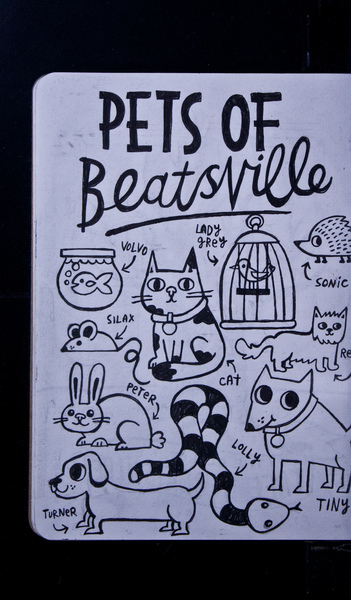 PETS OF
Beatsville
LADY
GREY
VOLVO
SONIC
SILAX
RE
CAT
PETER
LOLLY
TURNER
TINY